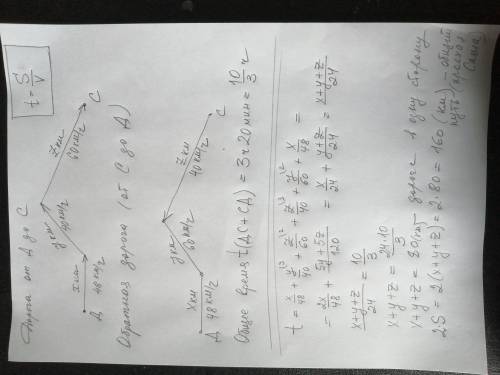 Дорога от Д до С
t = S/V
x км
48 км/ч
y км
40 км/ч
z км
60 км/ч
Д
С
Обратная дорога (от С до Д)
x км
48 км/ч
y км
60 км/ч
z км
40 км/ч
Д
С
Общее время t(ДС+СД) = 3ч 20 мин = 10/3 ч
t = x/48 + y/40 + z/60 + z/40 + y/60 + x/48 =
= 2x/48 + (5y + 5z)/120 = x/24 + (y+z)/24 = (x+y+z)/24
(x+y+z)/24 = 10/3
x+y+z = (24·10)/3
x+y+z = 80(км) дорога в одну сторону
2S = 2(x+y+z) = 2·80 = 160 (км) – общий
путь